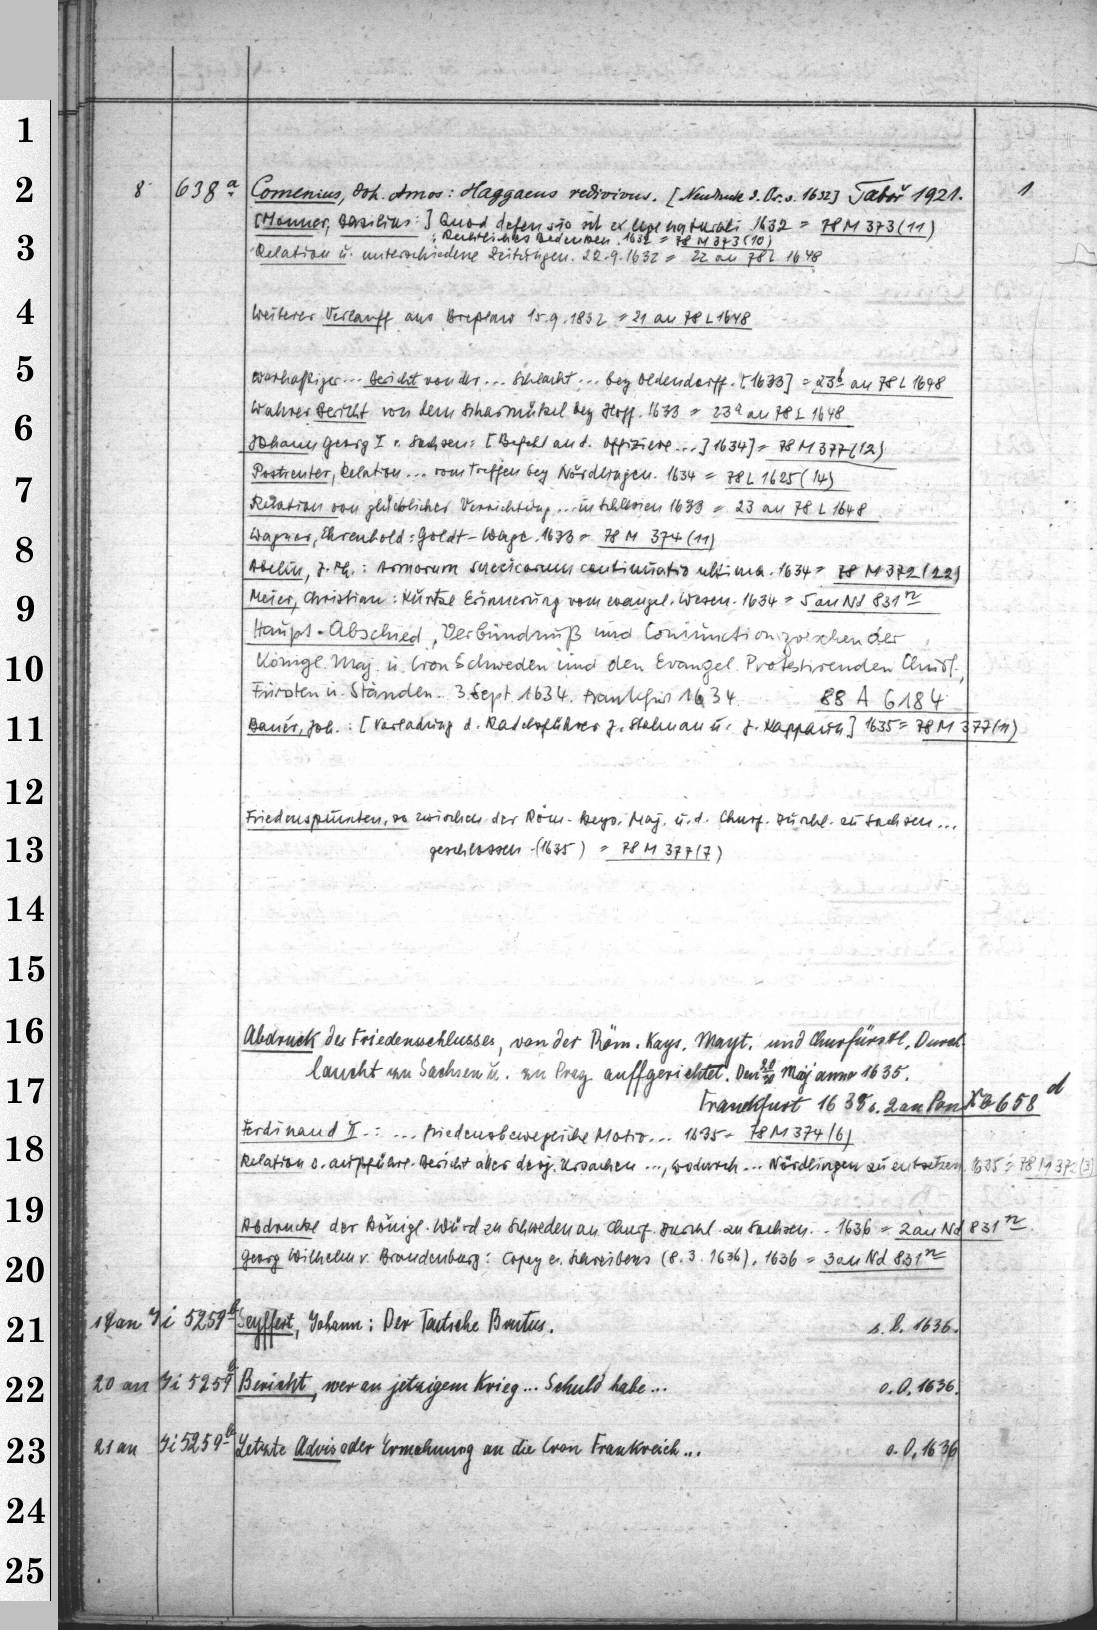 1
2
3
4
5
6
7
8
9
10
11
12
13
14
15
16
17
18
19
20
21
22
23
24
25
8° 638 a Comenius, Joh. Amos: Haggaeus redivivus. [Neudruck d. Ds. v. 1632] Tabor 1921. 1
[Monner, Basilius:] Quod defensio sit ex lege naturali 1632 = 78 M 373 (11)
: Rechtliches Bedencken. 1632 = 78 M 373 (10)
Relation u. unterschiedene Zeitungen. 22.9.1632 = 22 an 78 L 1648
Weiterer Verlauff aus Bresslaw 15.9.1632 = 21 an 78 L 1648
Warhafftiger ... Bericht von der ... Schlacht ... bey Oldendorff. [1633] = 23 b an 78 L 1648
Wahrer Bericht von dem Scharmützel bey Hoff. 1633 = 23 a an 78 L 1648
Johann Georg I v. Sachsen: [Befehl an d. Offiziere ...] 1634] = 78 M 377 (12)
Postreuter, Relation ... vom Treffen bey Nördlingen. 1634 = 78 L 1625 (14)
Relation von glücklicher Verrichtung ... in Schlesien 1633 = 23 an 78 L 1648
Wagner, Ehrenhold: Goldt-Wage. 1633 = 78 M 374 (11)
Abelin, J. Ph.: Armorum Suecicorum continuatio ultima. 1634 = 78 M 372 (22)
Meier, Christian: Kurtze Erinnerung vom evangel. Wesen. 1634 = 5 an Nd 831 n
Haupt-Abschied, Verbündnuß und Coniunction zwischen der
Königl. Maj. u. Cron Schweden und den Evangel. Protestirenden Churf.,
Fürsten u. Ständen. 3 Sept. 1634. Frankfurt 1634. 88 A 6184
Banér, Joh.: [Vorladung d. Radelsführer J. Stalman u. J. ] 1635 = 78 M 377 (11)
Friedenspuncten, so zwischen der Röm. Keys. Maj. u. d. Churf. Durchl. zu Sachsen ...
geschlossen (1635) = 78 M 377 (7)
Abdruck des Friedenschlusses, von der Röm. Kays. Mayt. und Churfürstl. Durch
laucht zu Sachsen u. zu Prag auffgerichtet. Den 20/30 Maj anno 1635.
Franckfurt 1635. 2 an 658 d
Ferdinand II.: ... Friedensbewegliche Motio ... 1635 = 78 M 374 (6)
Relation o. aussführl. Bericht aller derj. Ursachen ..., wodurch ... Nördlingen zu entsetzen. 1635 = 78 M 372 (3)
Abdrucke der Königl. Würd zu Schweden an Churf. Durchl. zu Sachsen .. 1636 = 2 an Nd 831 n
Georg Wilhelm v. Brandenburg: Copey e. Schreibens (8.3.1636). 1636 = 3 an Nd 831 n
19 an Yi 5259 b Seyffert, Johann: Der Teutsche Brutus. s. l. 1636.
20 an Yi 5259 b Bericht, wer an jetzigem Krieg ... Schuld habe ... o. O. 1636.
21 an Yi 5259 b Letzte Advis oder Ermahnung an die Cron Frankreich ... o. O. 1636